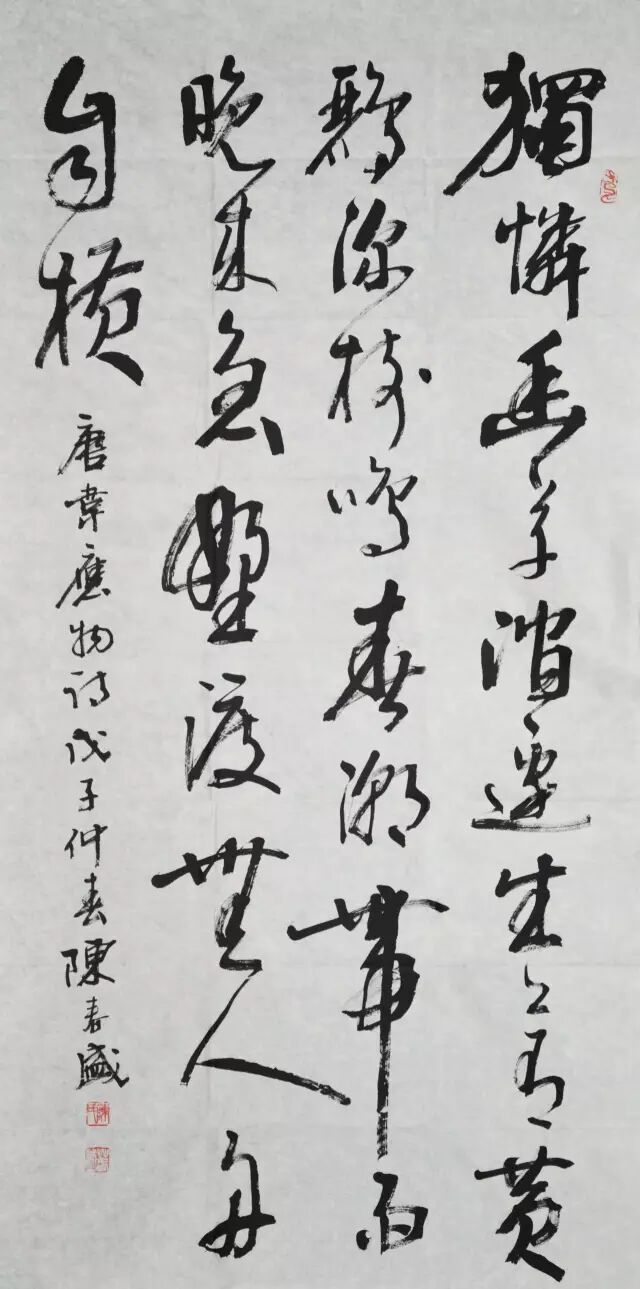 獨憐幽草澗邊生上有黃
鸝深樹鳴春潮帶雨
晚來急野渡無人舟
自橫
唐韋應物詩戊子仲春陳春盛